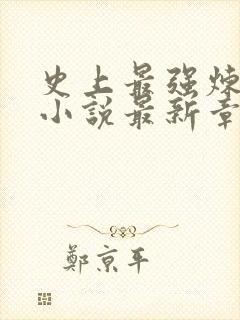 史上最强炼
小說最新章
鄭京平